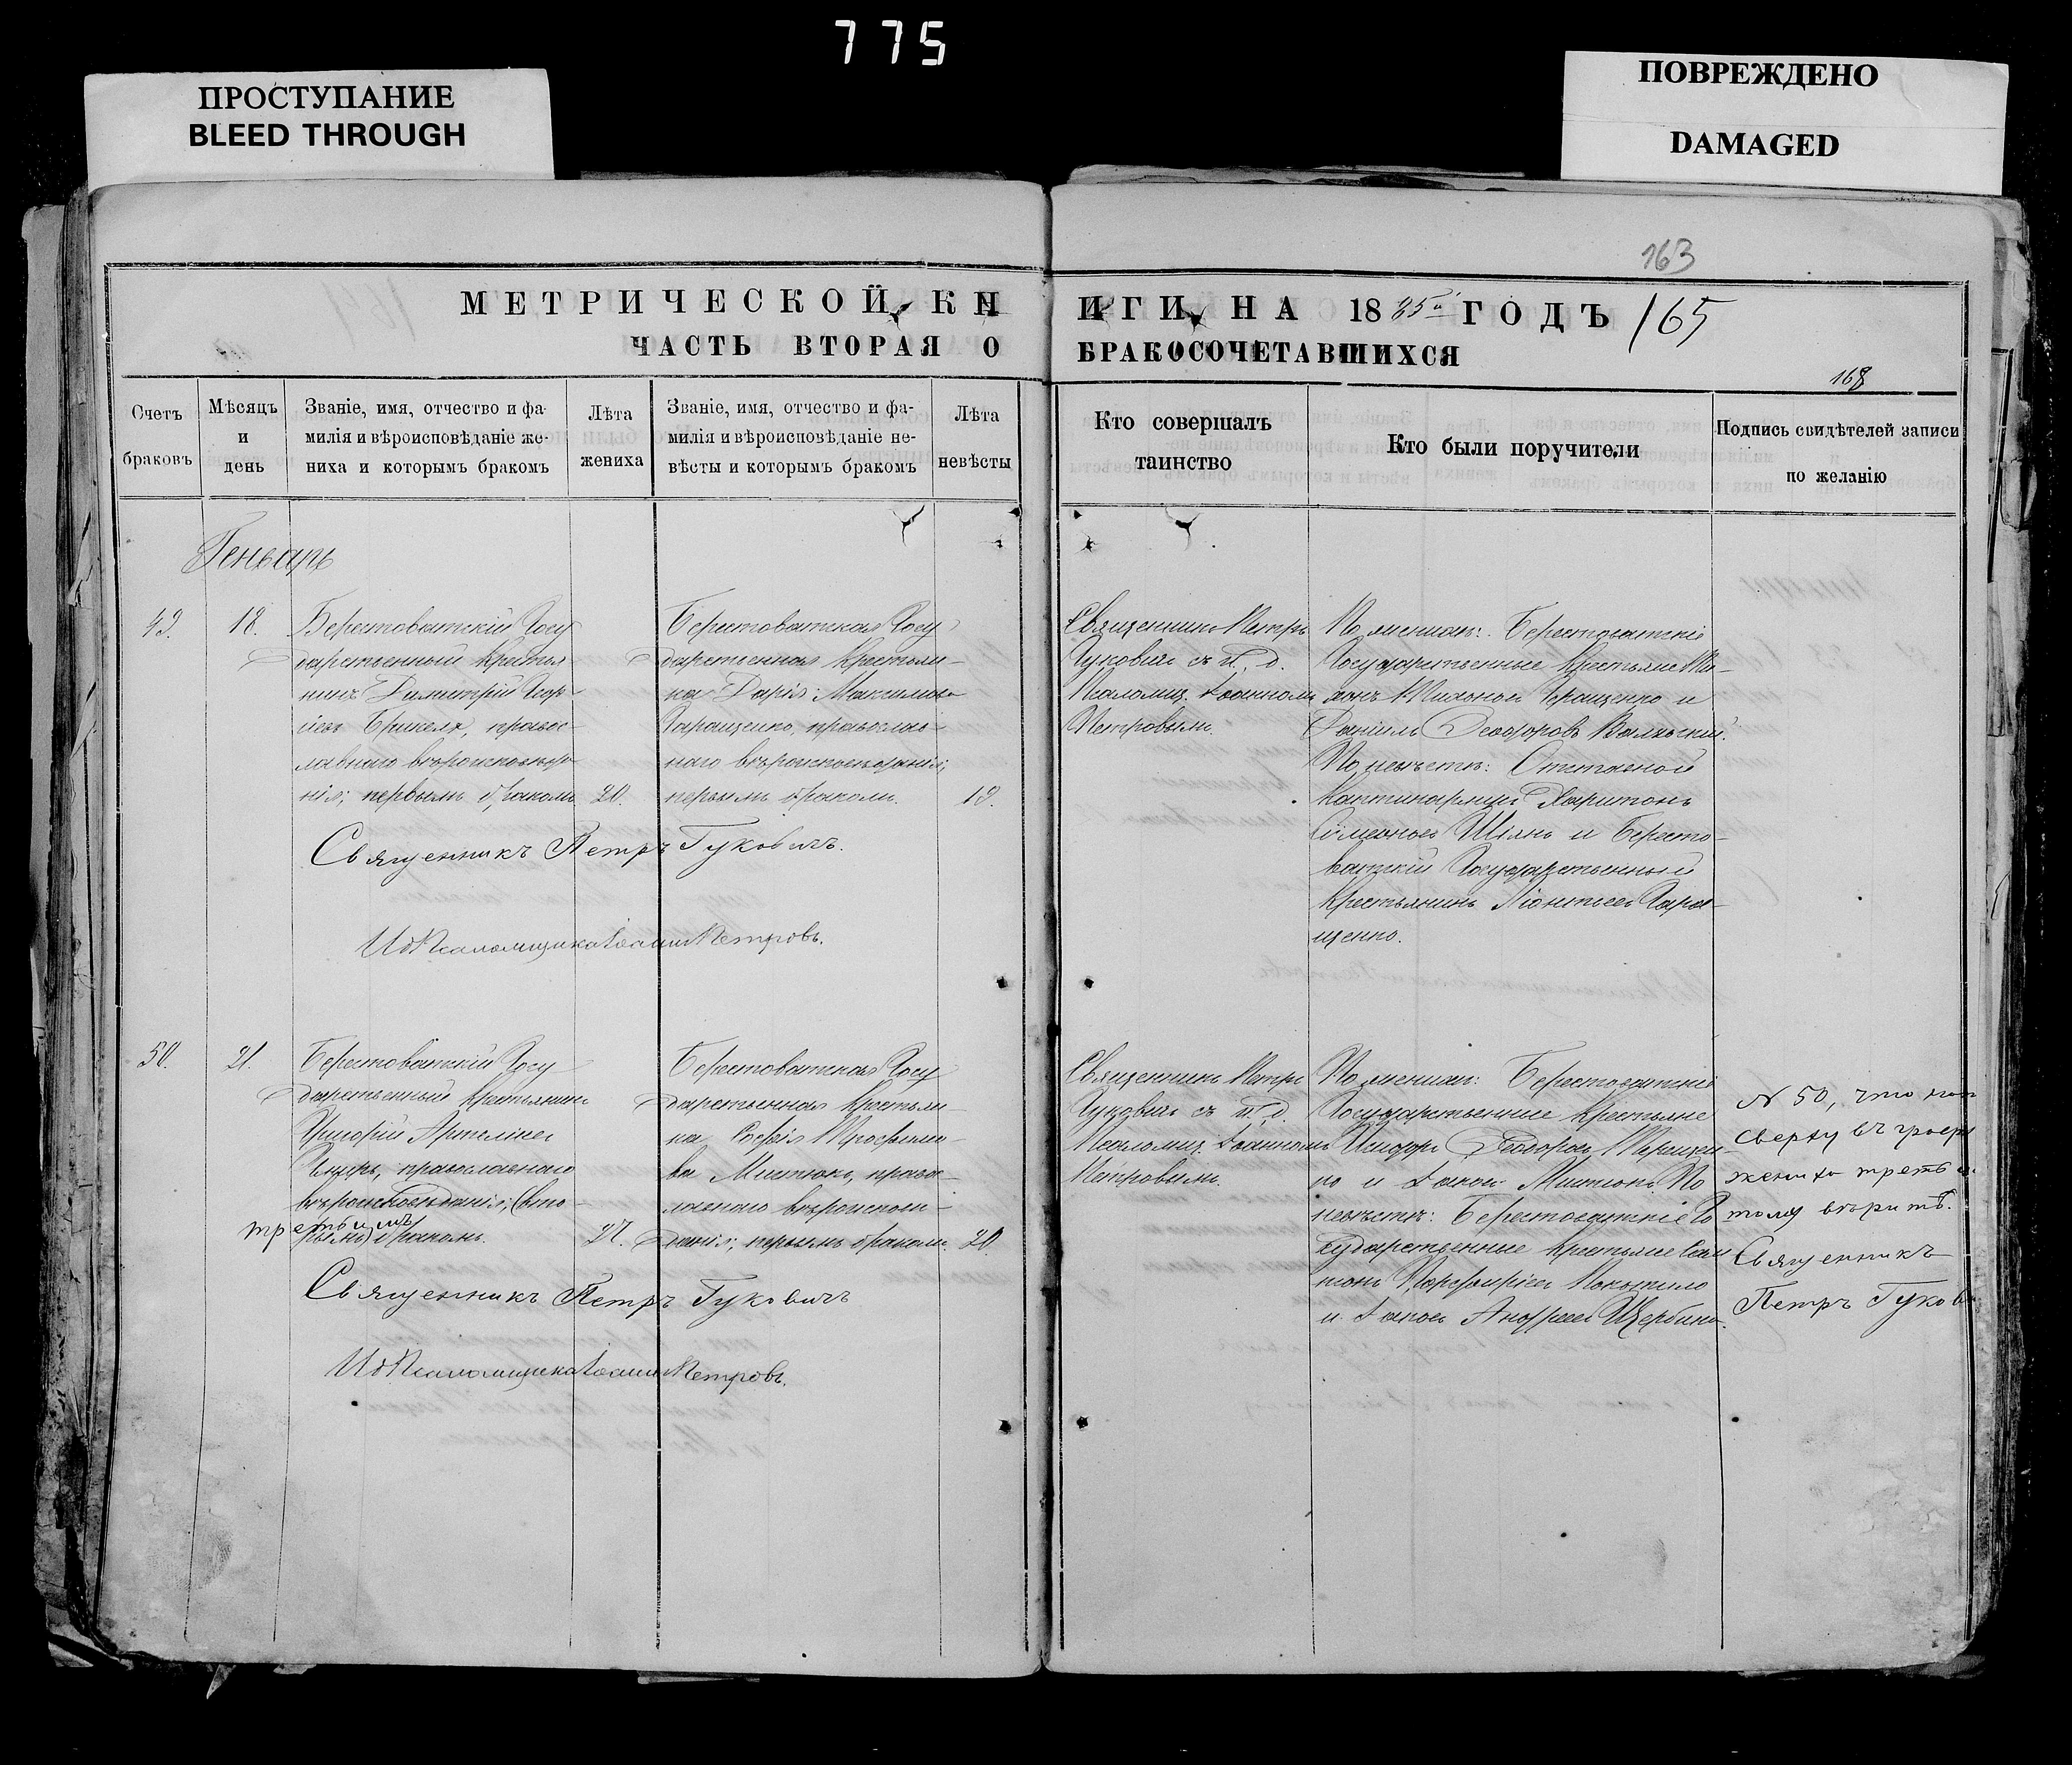 775
ПРОСТУПАНИЕ
BLEED THROUGH
ПОВРЕЖДЕНО
DAMAGED
163
МЕТРИЧЕСКОЙ КНИГИ НА 1885й ГОДЪ 165
ЧАСТЬ ВТОРАЯ О БРАКОСОЧЕТАВШИХСЯ
168
Счетъ
браковъ
Мѣсяцъ
и
день
Званіе, имя, отчество и фа-
милія и вѣроисповѣданіе же-
ниха и которымъ бракомъ
Лѣта
жениха
Званіе, имя, отчество и фа-
милія и вѣроисповѣданіе не-
вѣсты и которымъ бракомъ
Лѣта
невѣсты
Кто совершалъ
таинство
Кто были поручители
Подпись свидѣтелей записи
по желанію
Генварь
49.
18.
Берестоватскій Госу
дарственный Крестья
нинъ Димитрій
правос-
лавнаго вѣроисповѣда-
нія; первымъ бракомъ
20.
Берестоватская Госу
дарственная Крестьян-
ка Дарія Максимова
Геращенко, православ-
наго вѣроисповѣданія;
первымъ бракомъ.
19.
Священникъ Петръ
Гуковичъ съ и. д.
Псаломщ. Іоанномъ
Петровымъ.
По женихѣ: Берестоватскіе
Государственные Крестьяне
Геращенко и
Даніилъ Ѳеодоровъ
По невѣстѣ: Отставной
Харитонъ
Симеоновъ Шіянъ и Бересто-
ватскій Государственный
Крестьянинъ Гера-
щенко.
Священникъ Петръ Гуковичъ.
И д Псаломщика Іоаннъ Петровъ.
50.
21.
Берестоватскій Госу
дарственный Крестьянинъ
Григорій
православнаго
вѣроисповѣданія; (вто-
третьимъ
рымъ) бракомъ.
27.
Берестоватская Госу
дарственная Крестьян-
ка Софія Трофимо-
ва Митюкъ, право-
славнаго вѣроисповѣ-
данія; первымъ бракомъ.
20.
Священникъ Петръ
Гуковичъ съ и. д.
Псаломщ. Іоанномъ
Петровымъ.
По женихѣ: Берестоватскіе
Государственные Крестьяне
Ѳеодоровъ Терещен-
ко и Митюкъ. По
невѣстѣ: Берестоватскіе Го
сударственные Крестьяне
Порфиріевъ
и Андреевъ Щербина.
N 50, что
сверху въ графѣ
жениха
тому вѣрить.
Священникъ
Петръ Гукови
Священникъ Петръ Гуковичъ
И д Псаломщика Іоаннъ Петровъ.